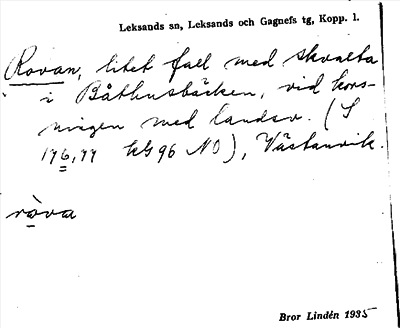 Leksands sn, Leksands och Gagnefs tg, Kopp. l.
Rovan, litet fall med skvalta
i Båthusbäcken, vid kors-
ningen med landsv. (S
176,77 kG 96 NO), Västanvik.
ròva
Bror Lindén 1935